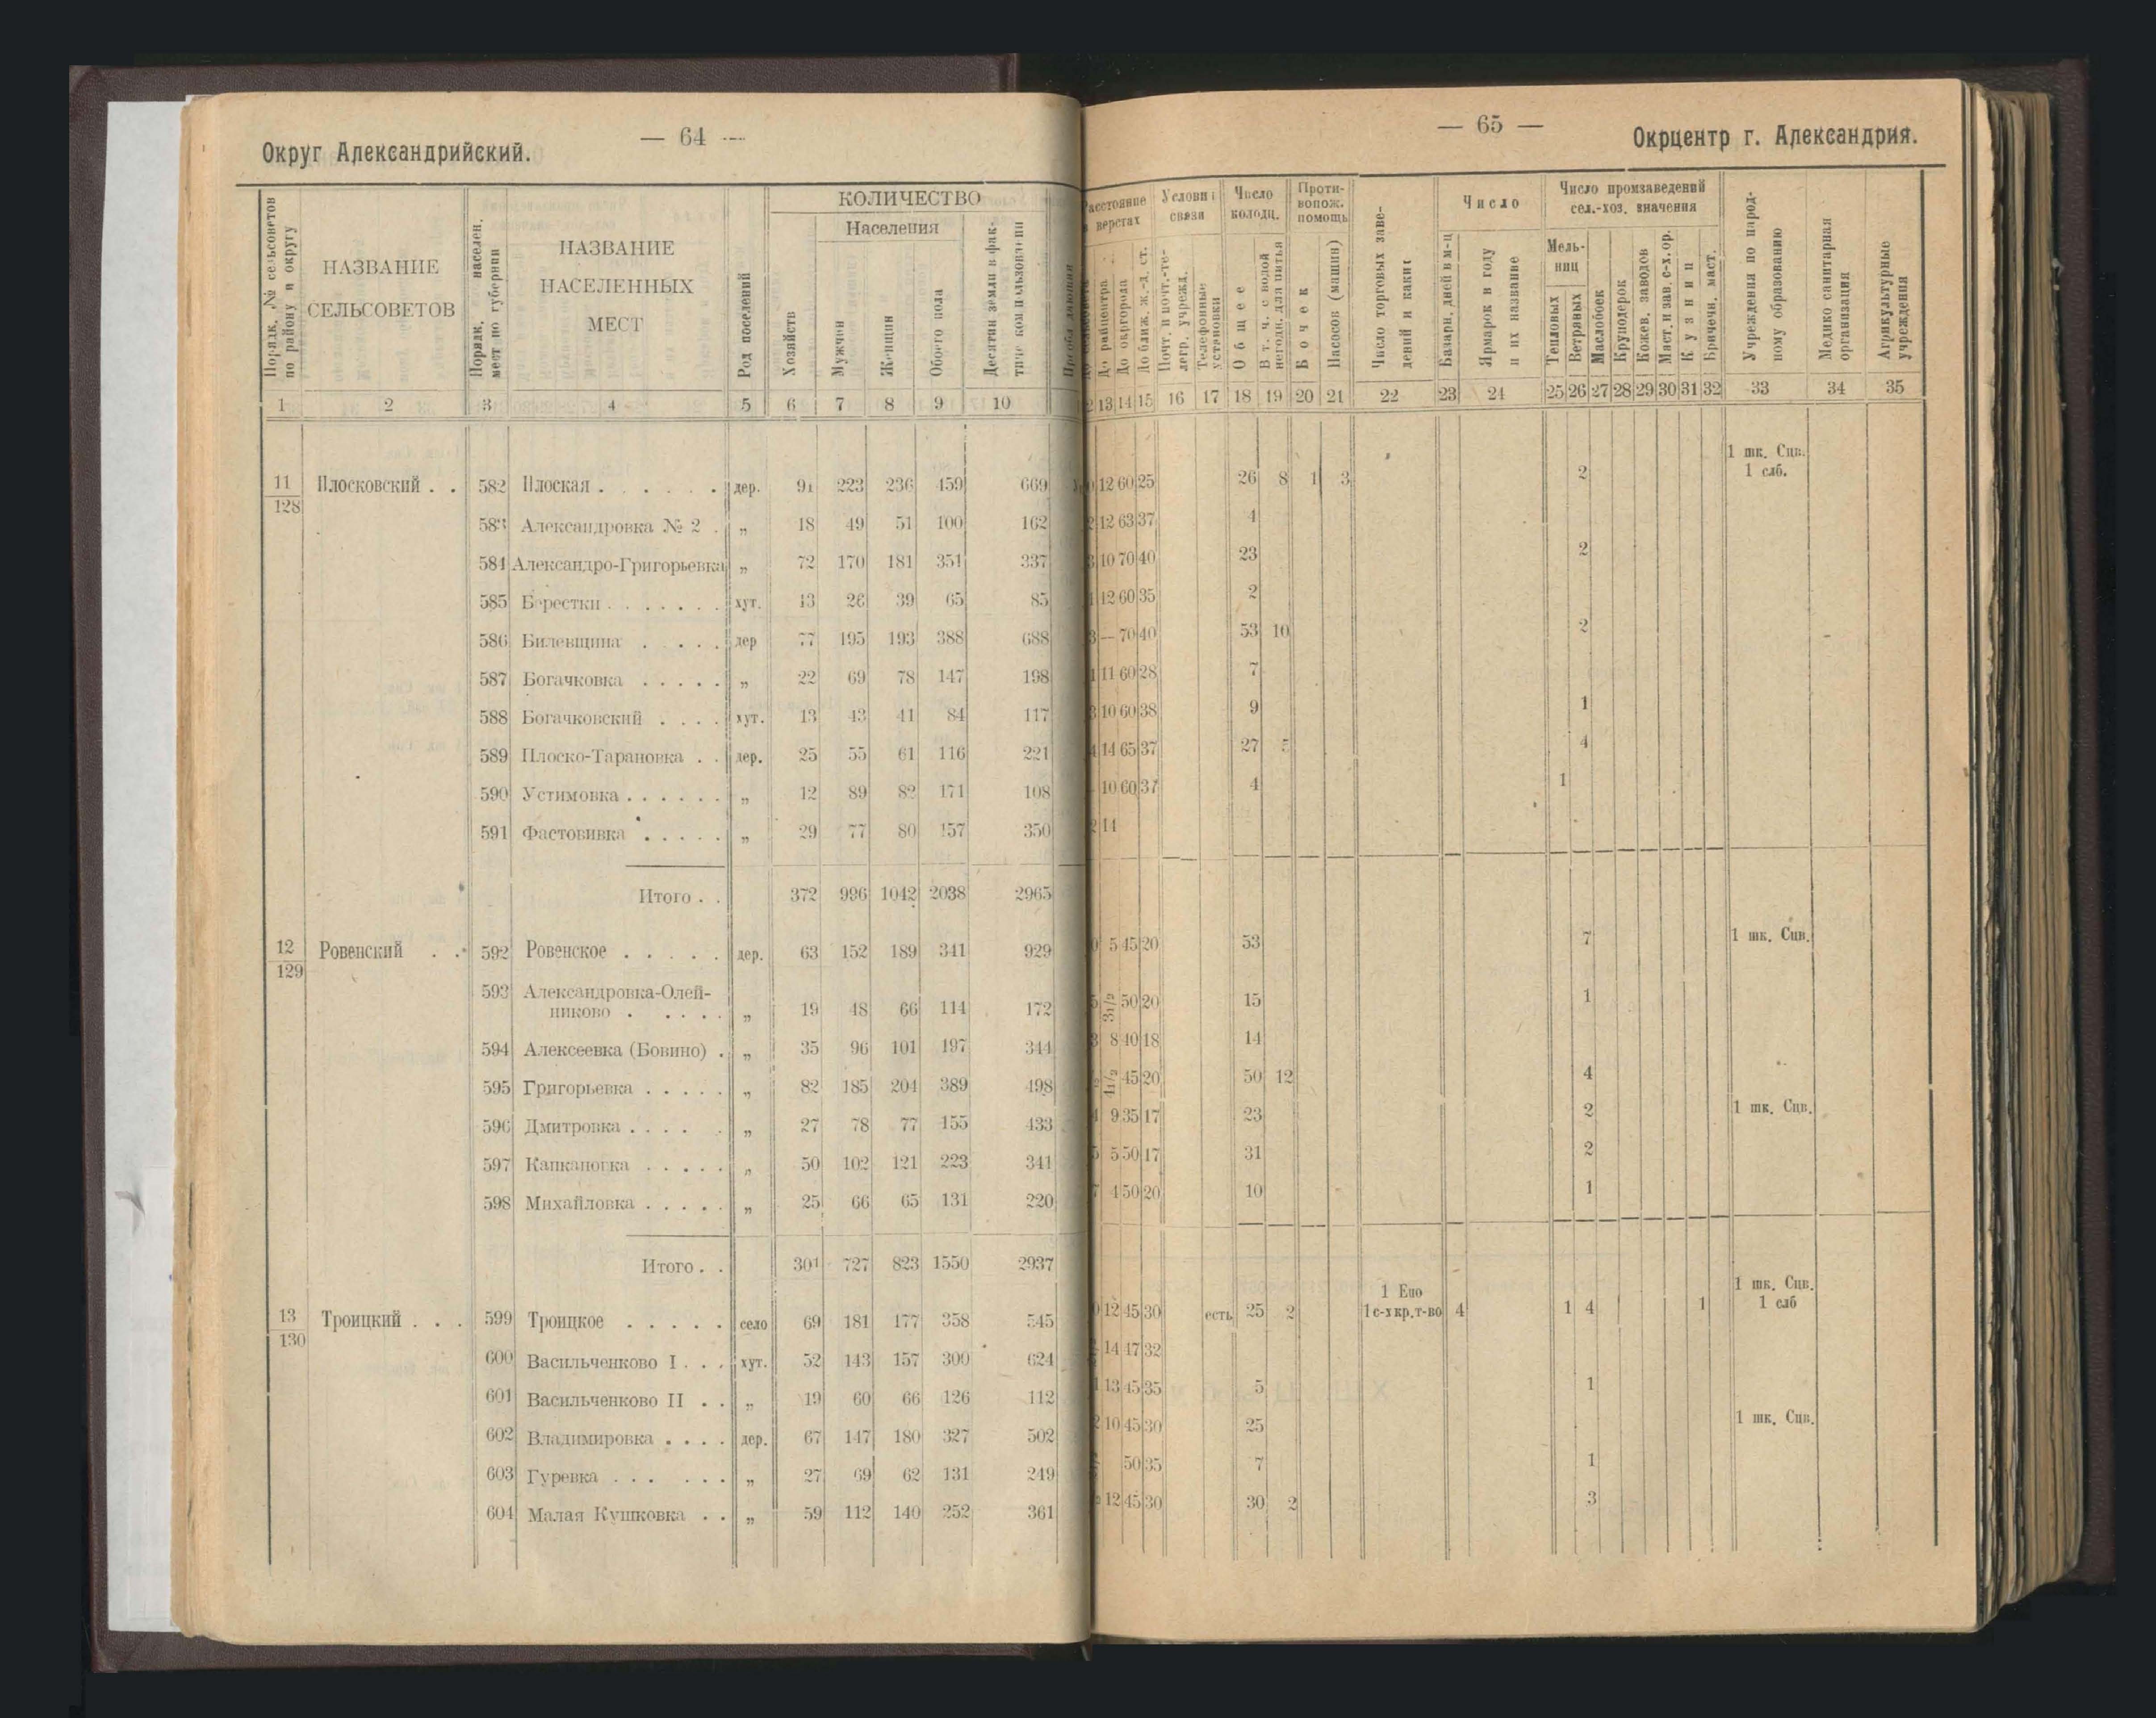 — 64 —
Округ Александрийский.
Порядк. № сельсоветов по району и округу
НАЗВАНИЕ СЕЛЬСОВЕТОВ
Порядк. населен. мест по губернии
НАЗВАНИЕ НАСЕЛЕННЫХ МЕСТ
Род поселений
КОЛИЧЕСТВО
Хозяйств
Населения
Мужчин
Женщин
Обоего пола
Десятин земли в фак-
1 2 3 4 5 6 7 8 9 10
11/128 Плосковский . . 582 Плоская . . . . . . дер. 91 223 236 459 669
583 Александровка № 2 . „ 18 49 51 100 162
584 Александро-Григорьевка „ 72 170 181 351 337
585 Берестки . . . . . . . хут. 13 26 39 65 85
586 Билевщина . . . . . дер 77 195 193 388 688
587 Богачковка . . . . . „ 22 69 78 147 198
588 Богачковский . . . . хут. 13 43 41 84 117
589 Плоско-Тарановка . . дер. 25 55 61 116 221
590 Устимовка . . . . . . „ 12 89 82 171 108
591 Фастовивка . . . . . „ 29 77 80 157 350
Итого . . 372 996 1042 2038 2965
12/129 Ровенский . . 592 Ровенское . . . . . дер. 63 152 189 341 929
593 Александровка-Олей-
никово . . . . . „ 19 48 66 114 172
594 Алексеевка (Бовино) . „ 35 96 101 197 344
595 Григорьевка . . . . . „ 82 185 204 389 498
596 Дмитровка . . . . . „ 27 78 77 155 433
597 . . . . . „ 50 102 121 223 341
598 Михайловка . . . . . „ 25 66 65 131 220
Итого . . 301 727 823 1550 2937
13/130 Троицкий . . . 599 Троицкое . . . . . село 69 181 177 358 545
600 Васильченково I . . . хут. 52 143 157 300 624
601 Васильченково II . . „ 19 60 66 126 112
602 Владимировка . . . . дер. 67 147 180 327 502
603 Гуревка . . . . . . „ 27 69 62 131 249
604 Малая Кушковка . . „ 59 112 140 252 361
— 65 —
Окрцентр г. Александрия.
Расстояние в верстах
До райцентра
До окргорода
До ближ. ж.-д. ст.
Условия связи
Почт. и почт.-те-
легр. учрежд.
Телефонные установки
Число колодц.
Общее
В т. ч. с водой негодн. для питья
Проти-
вопож.
помощь
Бочек
Насосов (машин)
Число торговых заве-
дений и какие
Число
Базарн. дней в м-ц
Ярмарок в году и их название
Число промзаведений
сел.-хоз. значения
Мель-
ниц
Тепловых
Ветряных
Маслобоек
Круподерок
Кожев. заводов
Маст. и зав. с-х. ор.
Кузниц
Бричечн. маст.
Учреждения по народ-
ному образованию
Медико санитарная организация
Агрикультурные учреждения
13 14 15 16 17 18 19 20 21 22 23 24 25 26 27 28 29 30 31 32 33 34 35
1 шк. Сцв.
12 60 25 26 8 1 3 2 1 слб.
12 63 37 4
10 70 40 23 2
12 60 35 2
— 70 40 53 10 2
11 60 28 7
10 60 38 9 1
14 65 37 27 5 4
10 60 37 4 1
14
5 45 20 53 7 1 шк. Сцв.
3 1/2 50 20 15 1
8 40 18 14
45 20 50 12 4
9 35 17 23 2 1 шк. Сцв.
5 50 17 31 2
4 50 20 10 1
1 Епо 1 шк. Сцв.
12 45 30 есть 25 2 1 с-х кр. т-во 4 1 4 1 1 слб
14 47 32
13 45 35 5 1
10 45 30 25 1 шк. Сцв.
50 35 7 1
12 45 30 30 2 3